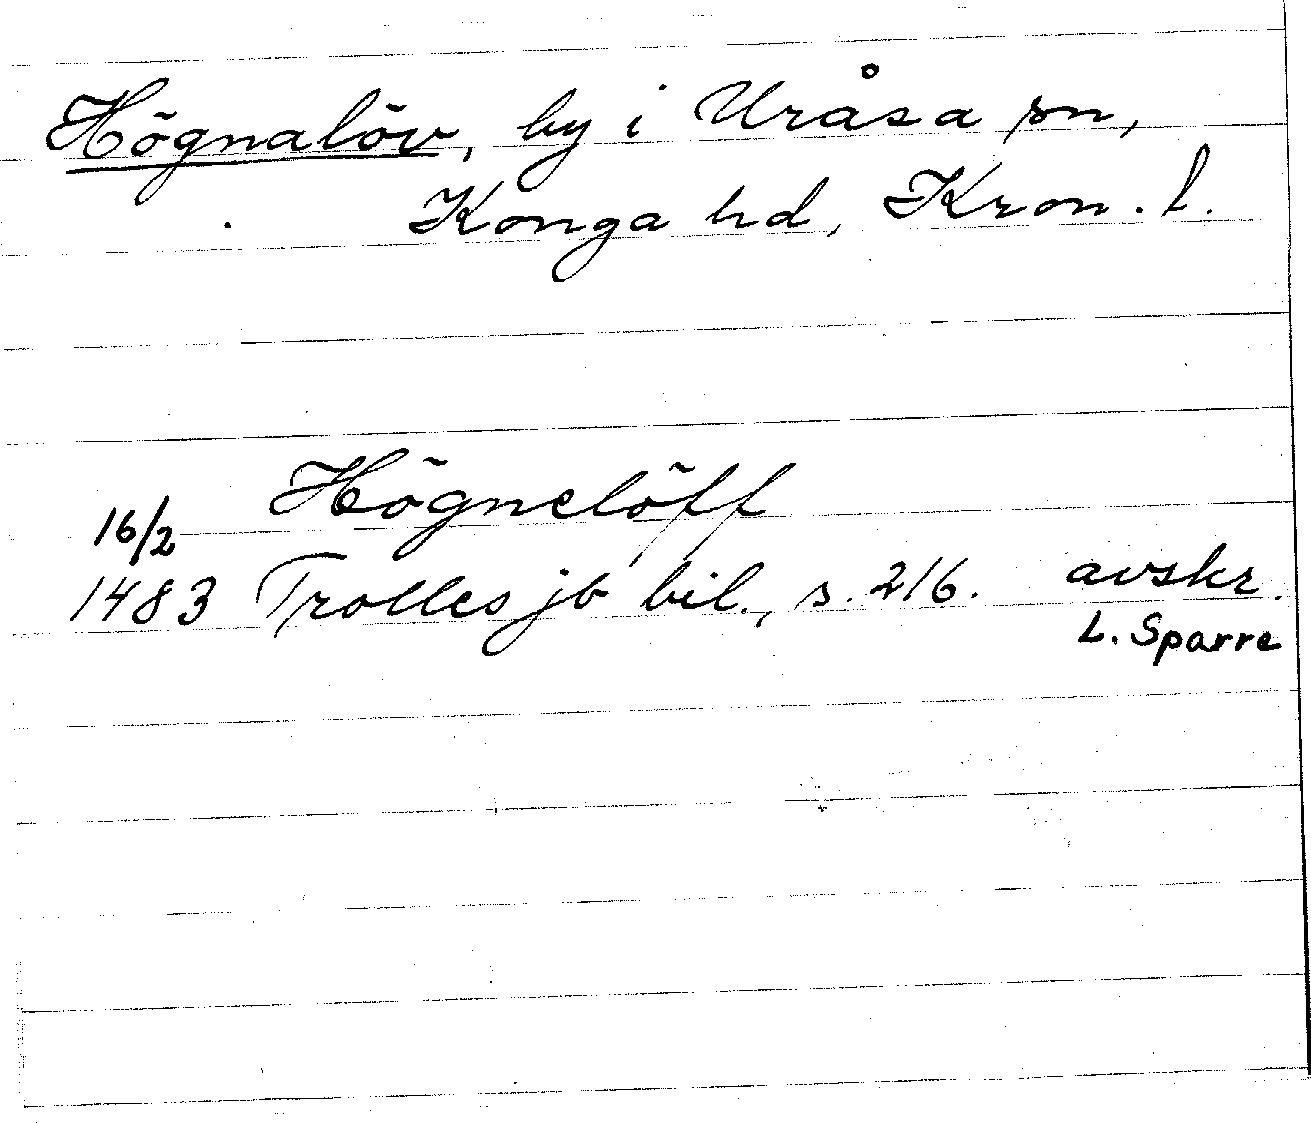 Högnalöv, by i Uråsa sn,
Konga hd, Kron. l.
Högnelöff
16/2
1483 Trolles jb bil., s. 216. avskr.
L. Sparre